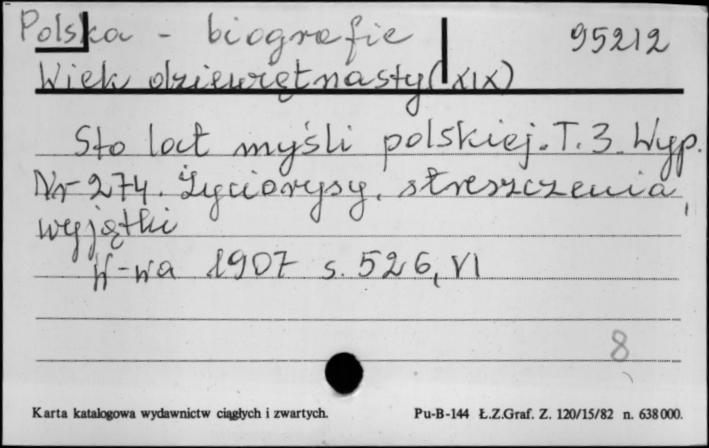 Polska - biografie 95212
Wiek dziewiętnasty (XIX)
Sto lat myśli polskiej. T. 3. Wyp.
Nr 274. Życiorysy, streszczenia,
wyjątki
W-wa 1907 s. 526, VI
8
Karta katalogowa wydawnictw ciągłych i zwartych. Pu-B-144 Ł.Z.Graf. Z. 120/15/82 n. 638000.